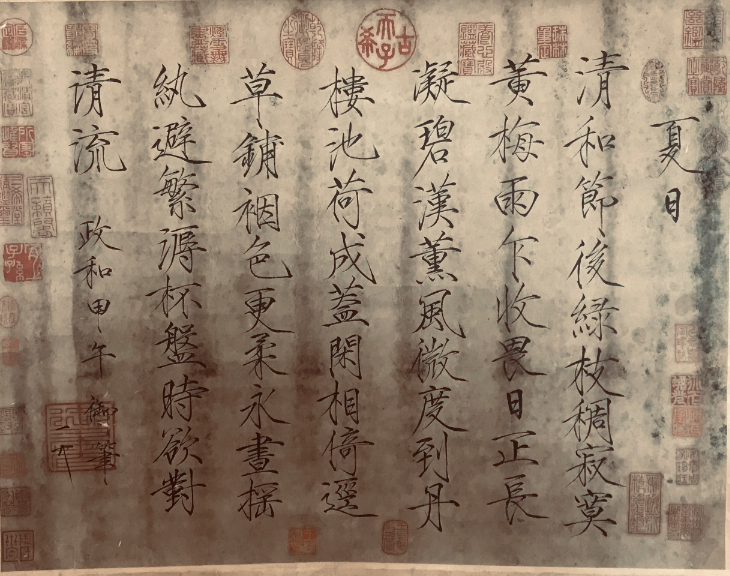 夏日
清和節後綠枝稠寂寞
黃梅雨乍收畏日正長
凝碧漢薰風微度到丹
樓池荷成蓋閑相倚逕
草鋪裀色更柔永晝搖
紈避繁溽杯盤時欲對
清流 政和甲午御筆
古希天子